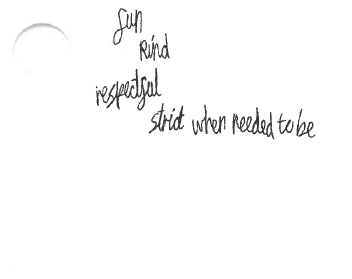 fun
kind
respectful
strict when needed to be